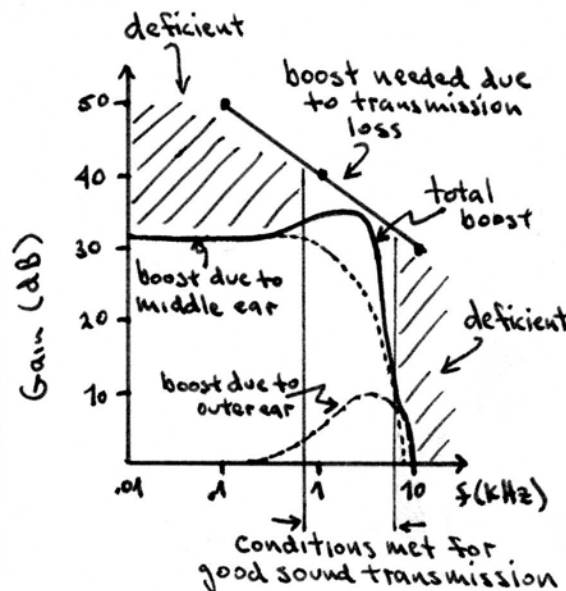 deficient
boost needed due
to transmission
loss
total
boost
50
40
30
20
10
Gain (dB)
boost due to
middle ear
deficient
boost due to
outer ear
.01
.1
1
10
f(kHz)
conditions met for
good sound transmission